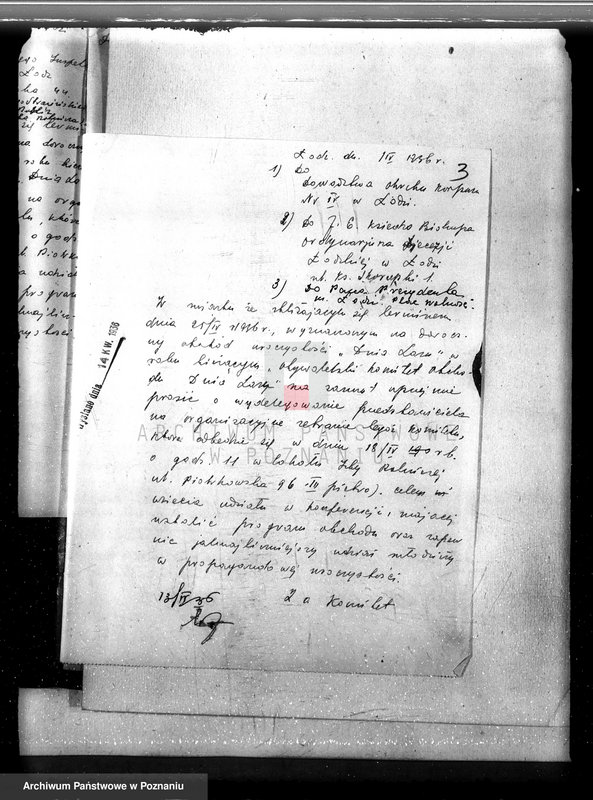 3
Łódź, dn. IV 1936 r.
1) Do
Dowództwa Okręgu Korpusu
Nr IV w Łodzi.
2) Do J. E. Księdza Biskupa
Ordynariusza Diecezji
Łódzkiej w Łodzi
ul. Ks. Skorupki 1.
3) Do Pana Prezydenta
m. Łodzi Plac Wolności.
W związku ze zbliżającym się terminem
dnia 25/IV 1936 r., wyznaczonym na dorocz-
ny obchód uroczystości "Dnia Lasu" w
roku bieżącym, obywatelski komitet obcho-
du "Dnia Lasu" ma zaszczyt uprzejmie
prosić o wydelegowanie przedstawiciela
na organizacyjne zebranie tegoż komitetu,
które odbędzie się w dniu 18/IV r. b.
o godz. 11 w lokalu Izby Rolniczej
ul. Piotrkowska 96 IV piętro). celem
wzięcia udziału w konferencji, mającej
ustalić program obchodu oraz zapew
nić jaknajliczniejszy udział młodzieży
w propagandowej uroczystości.
13/IV 36
Za Komitet
wysłano dnia 14 KW. 1936
ARCHIWUM PAŃSTWOWE
W POZNANIU
Archiwum Państwowe w Poznaniu